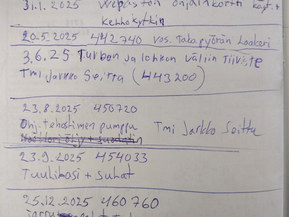 31.1.2025 Webaston ohjainkortti käyt +
kehkokytkin
20.5.2025 442740 vas. taka.pyörän laakeri
3.6.25 Turbon ja lohkon väliin tiiviste
Tmi Jarkko Seitta (443200)
23.8.2025 450720
Ohj.tehostimen pumppu Tmi Jarkko Seitta
23.9.2025 454033
Tuulilasi + suhat
25.12.2025 460760